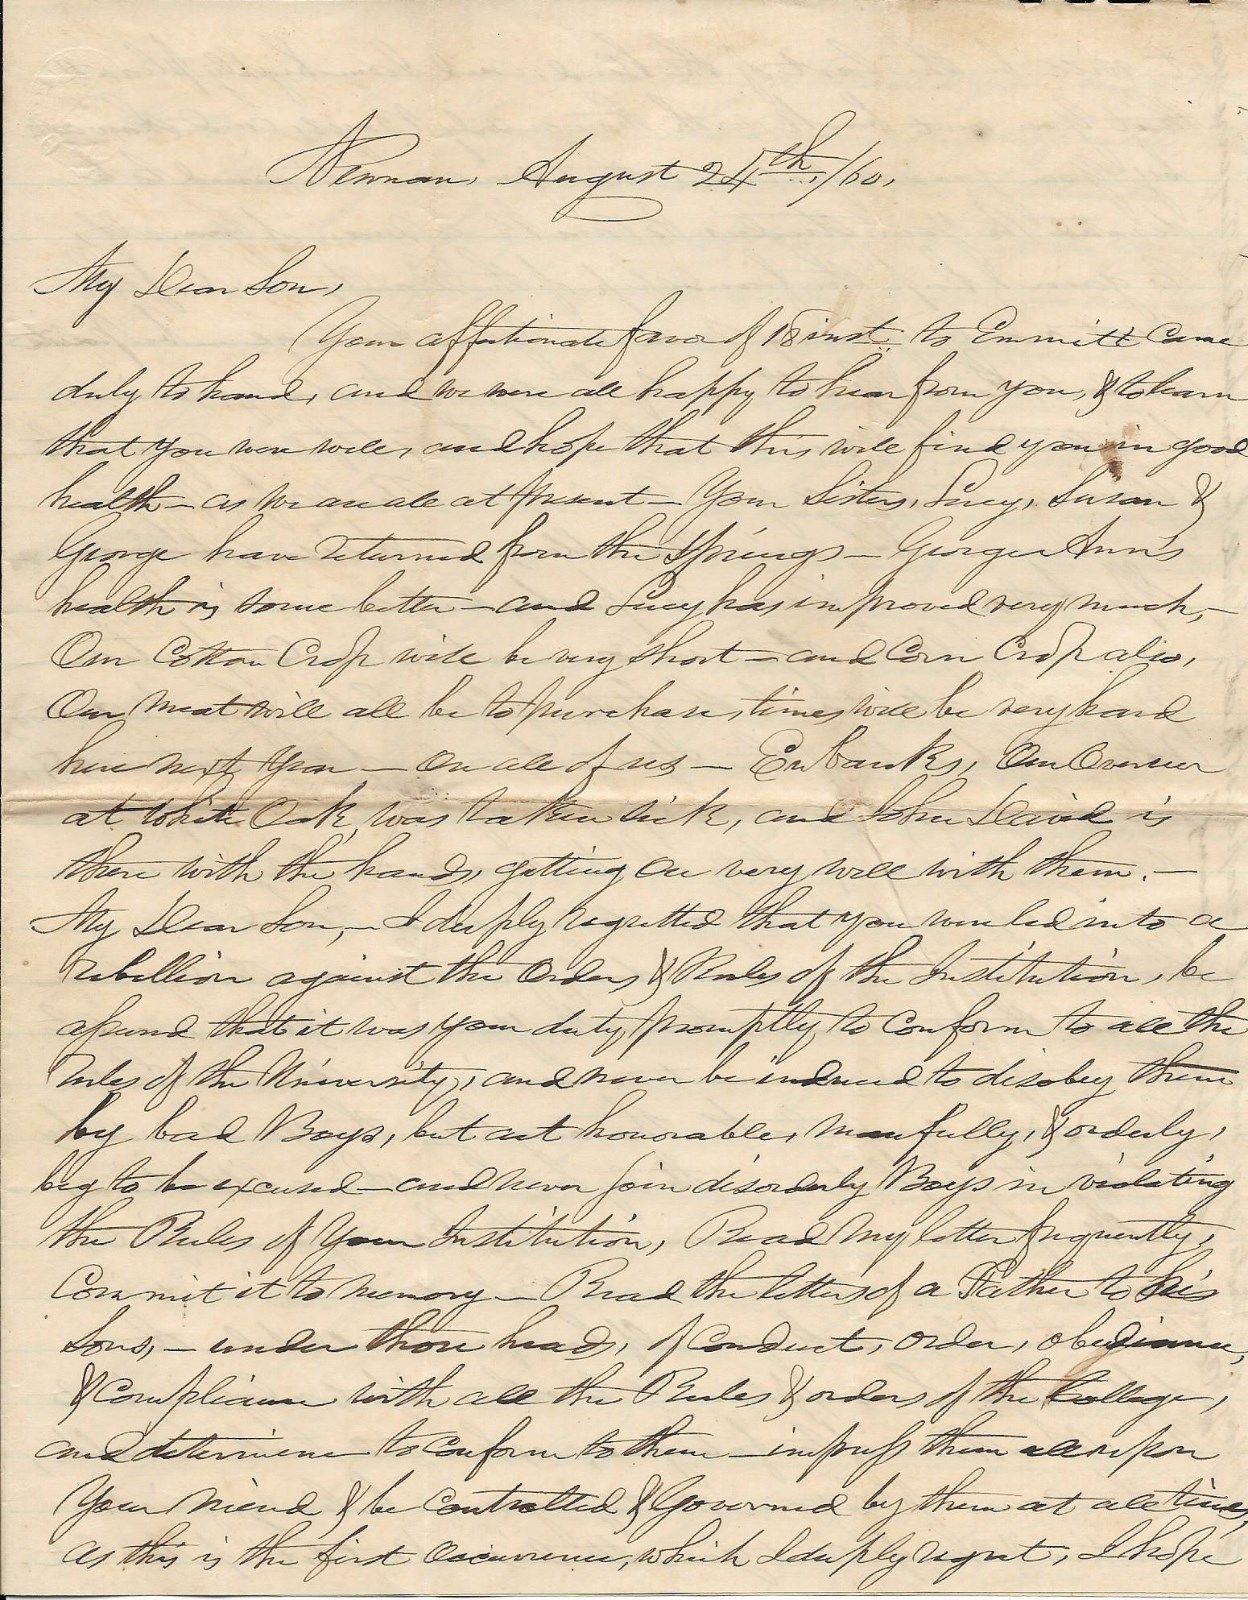 Newnan, August 24th, /60,
My Dear Son,
Your affectionate favor of 18 inst. to Emmitt Came
duly to hand, and we were all happy to hear from you, & to learn
that you were well, and hope that this will find you in good
health – as we are all at present – Your Sisters, Lucy, Susan &
George have returned from the Springs – George Ann's
health is some better – and Lucy has improved very much, –
Our Cotton Crop will be very short – and Corn Crop also,
Our meat will all be to purchase, times will be very hard
here next year – on all of us – Eubanks, Our Overseer
at White Oak, was taken sick, and John David is
there with the hands, getting on very well with them. –
My Dear Son, – I deeply regretted that you were led into a
rebellion against the Orders & Rules of the Institution, be
assured that it was your duty, promptly to Conform to all the
rules of the University, and never be induced to disobey them
by bad Boys, but act honorable, manfully, & orderly,
beg to be excused – and never join disorderly Boys in violating
the Rules of Your Institution, Read My letter frequently,
Commit it to memory – Read the letters of a Father to his
Sons, – under those heads, of Conduct, order, obedience,
& Compliance with all the Rules & orders of the College,
and determine to Conform to them – impress them all upon
Your miend & be Controlled & Governed by them at all times,
as this is the first Occurrence, which I deeply regret, I hope